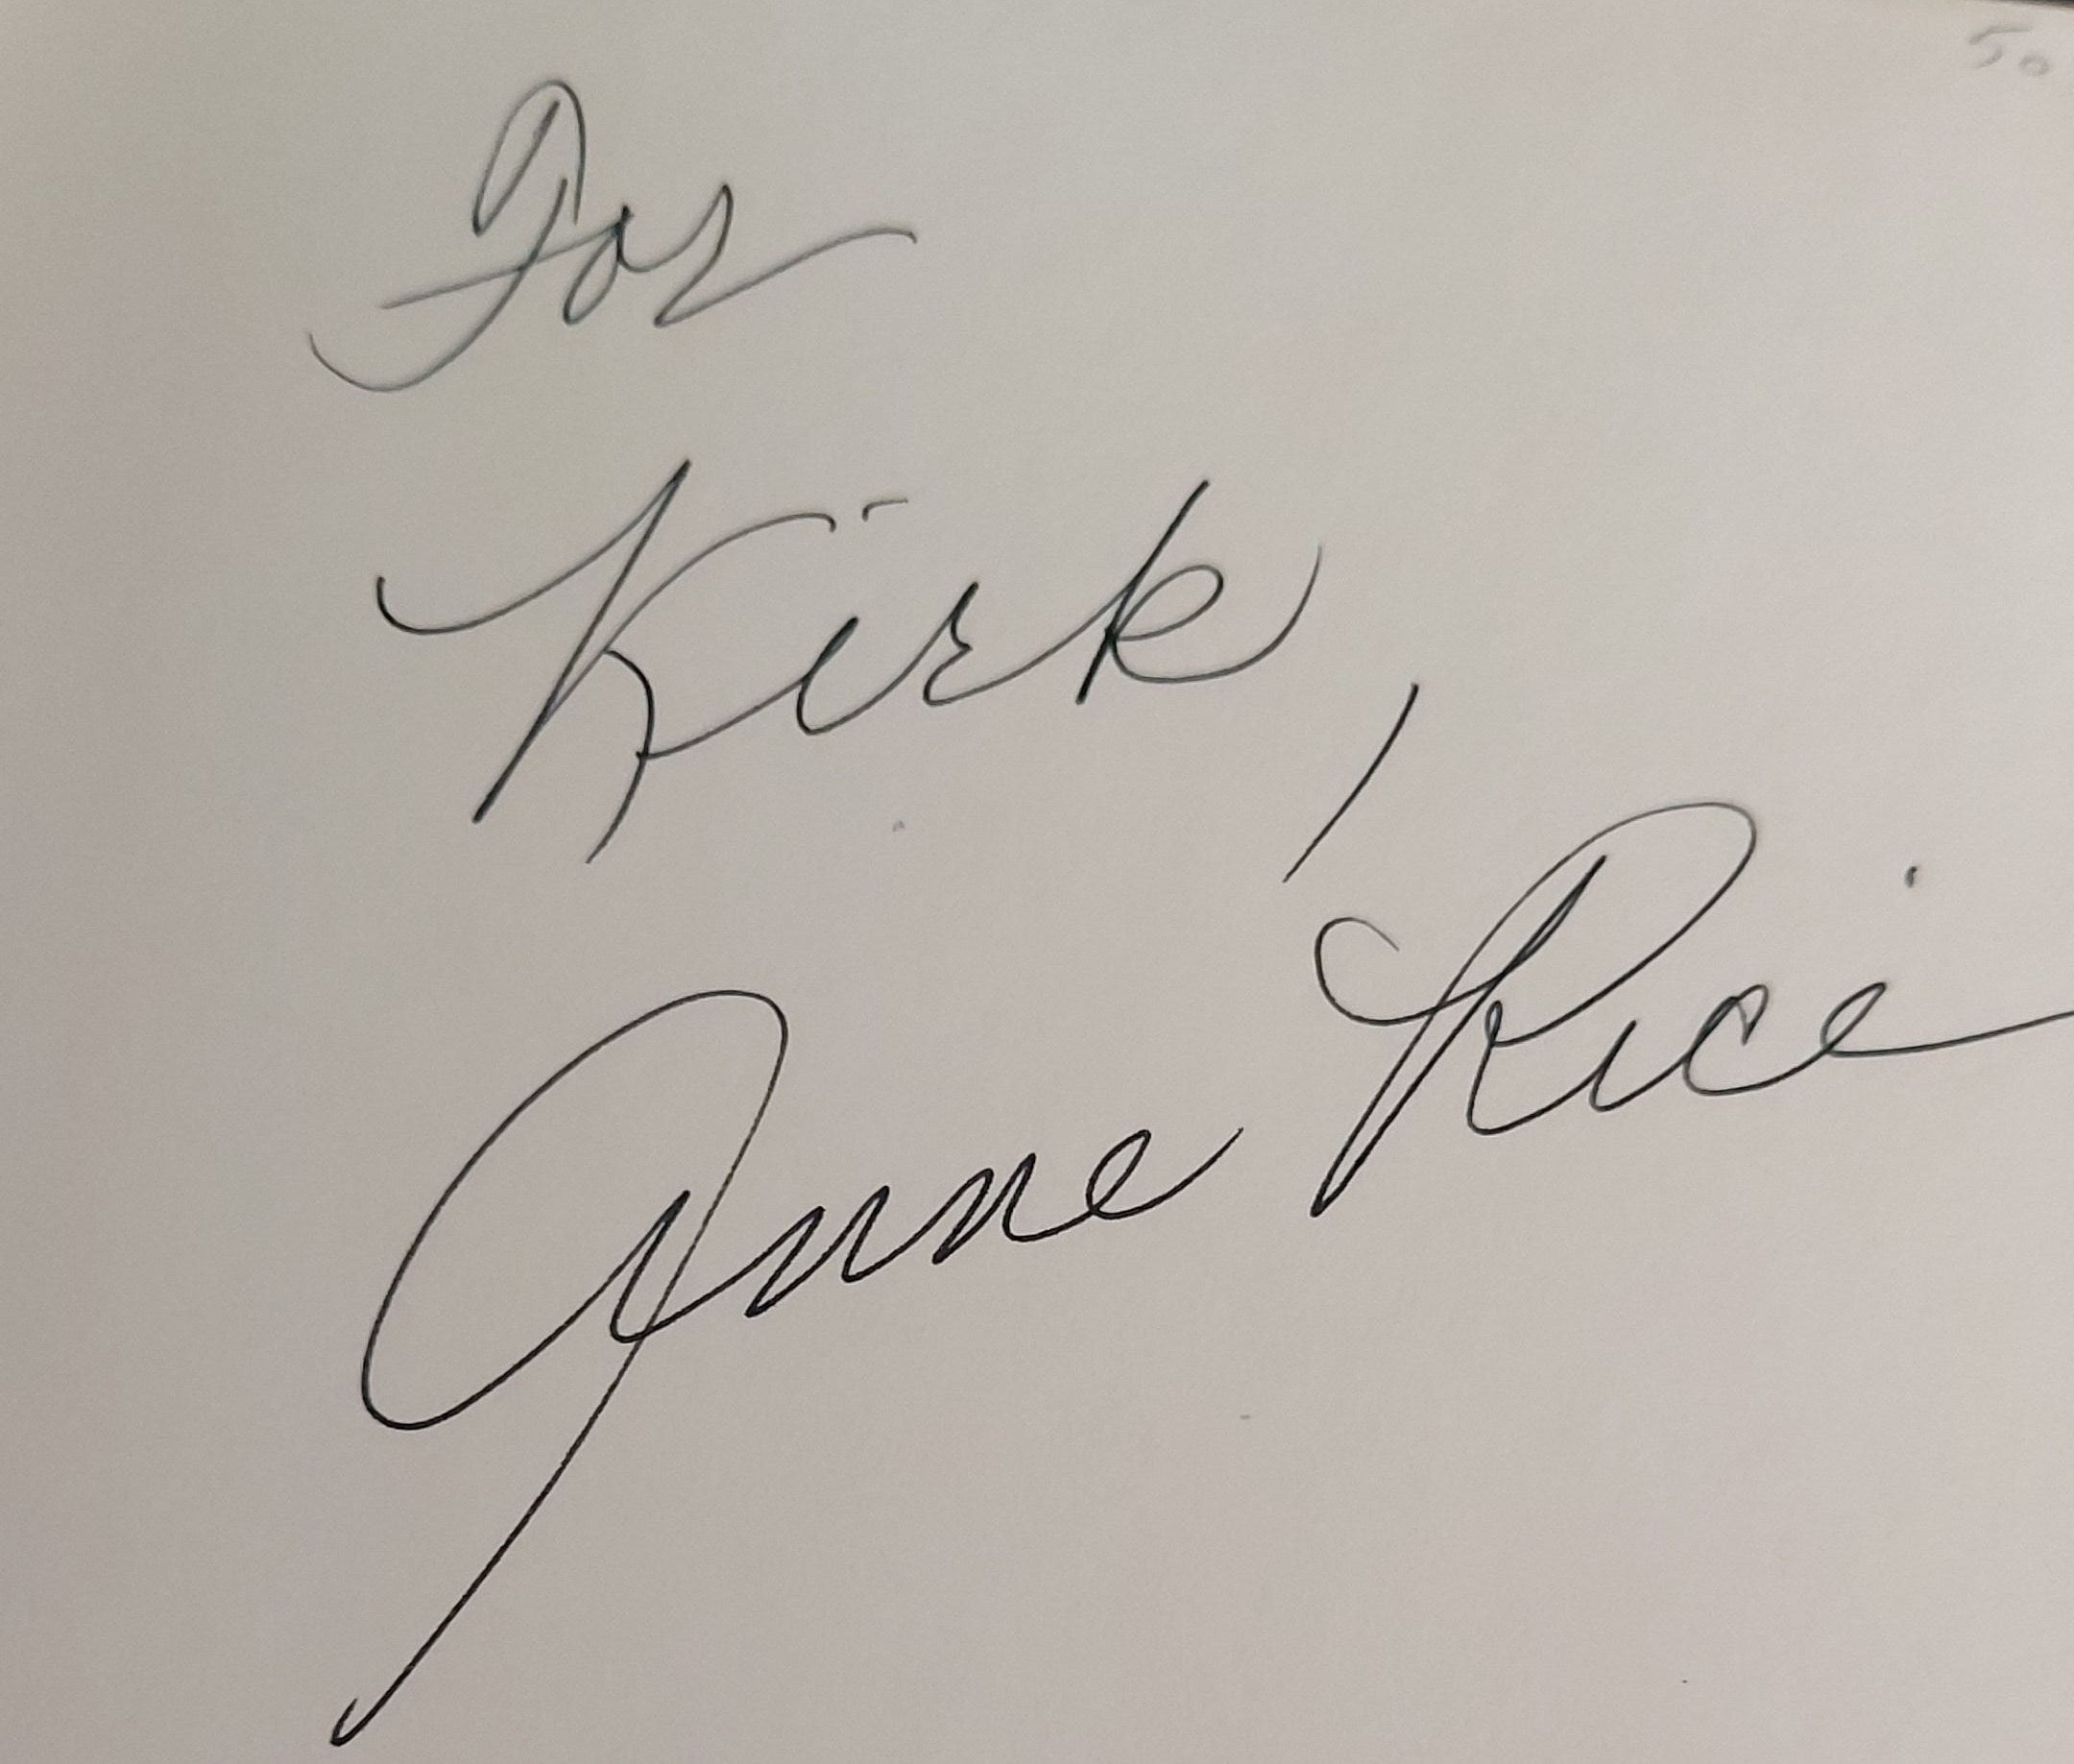 50
For
Kirk,
Anne Rice